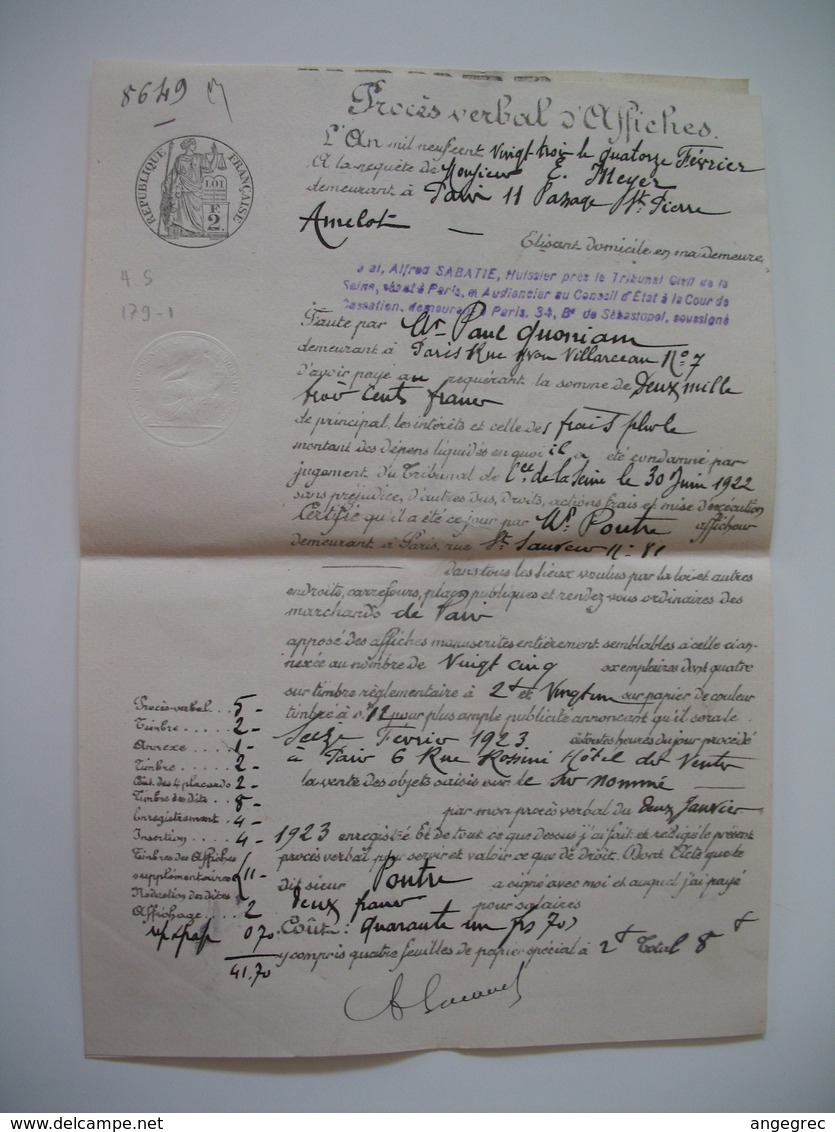 8649
Procès verbal d'Affiches.
L'An mil neufcent Vingt trois le quatorze Février
A la requête de Monsieur E. Meyer
demeurant à Paris 11 Passage St Pierre
Amelot —
Elisant domicile en ma demeure,
RÉPUBLIQUE FRANÇAISE
LOI
F
2.
J'ai, Alfred SABATIE, Huissier près le Tribunal Civil de la
Seine, séant à Paris, et Audiencier au Conseil d'État à la Cour de
Cassation, demeurant à Paris, 34, Bd de Sébastopol, soussigné
A S
179-1
Faute par Mr Paul Quoniam
demeurant à Paris Rue Yvon Villarceau No 7
d'avoir payé au requérant la somme de Deux mille
trois cents francs
de principal, les intérêts et celle des frais plus le
montant des dépens liquidés en quoi il a été condamné par
jugement du Tribunal de Cce de la Seine le 30 Juin 1922
sans préjudice, d'autres dus, droits, actions frais et mise d'exécution
Certifié qu'il a été ce jour par Mr Poutre afficheur
demeurant à Paris, rue St Sauveur n: 81
dans tous les lieux voulus par la loi et autres
endroits, carrefours, places publiques et rendez vous ordinaires des
marchands de Paris
apposé des affiches manuscrites entièrement semblables à celle ci an-
nexée au nombre de Vingt cinq exemplaires dont quatre
sur timbre règlementaire à 2f et Vingt un sur papier de couleur
timbré à 12 pour plus ample publicité annonçant qu'il sera le
Seize Février 1923 heures du jour procédé
à Paris 6 Rue Rossini Hôtel des Ventes
la vente des objets saisis sur le sus nommé —
par mon procès verbal du deux Janvier
1923 enregistré Et de tout ce que dessus j'ai fait et rédigé le présent
procès verbal pour servir et valoir ce que de droit. Dont Acte que le
dit sieur Poutre a signé avec moi et auquel j'ai payé
deux francs pour salaires
Coût: quarante un frs 70
y compris quatre feuilles de papier spécial à 2f Total 8f
Procès-verbal .. 5-
Timbre ..... 2-
Annexe .... 1-
Timbre ..... 2-
Coût des 4 placards 2-
Timbre des dits .. 8-
Enregistrement . 4-
Insertion ..... 4-
Timbres des Affiches
supplémentaires 11-
Rédaction des dites
Affichage .... 2
0 70
41.70
delcampe.net
angegrec